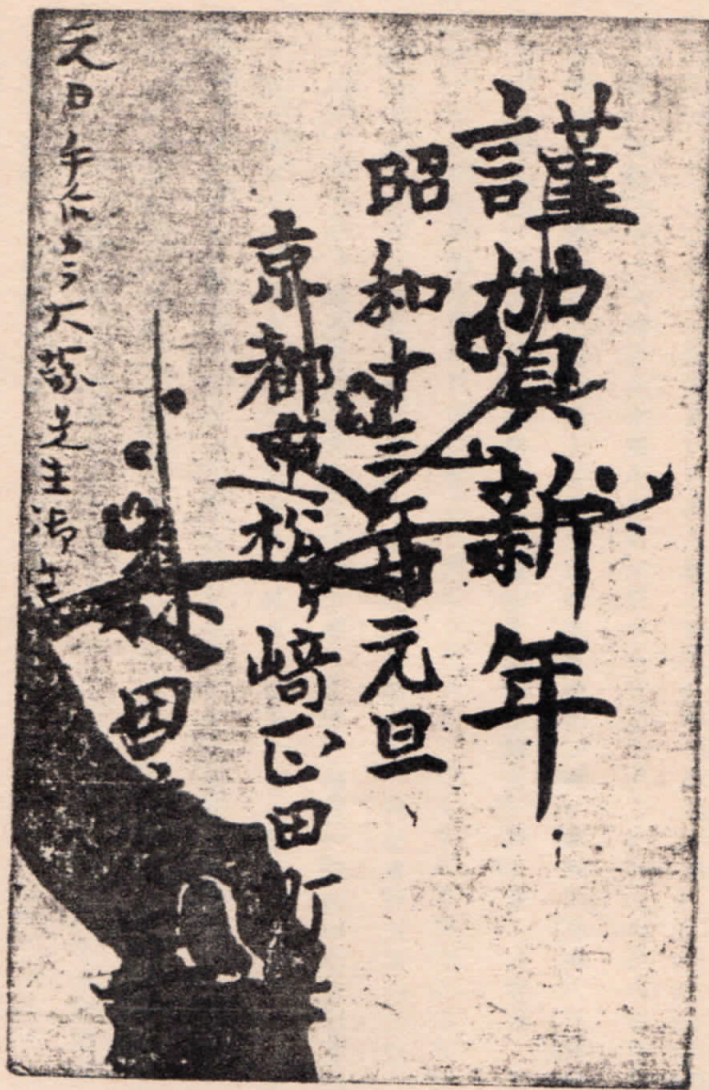 謹賀新年
昭和十三年元旦
京都市松ヶ崎正田町
森田
元日午后
大
先生